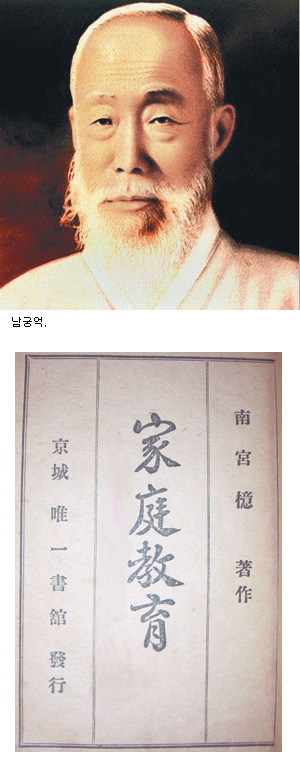 남궁억.
南宮檍 著作
家庭教育
京城 唯一書館 發行